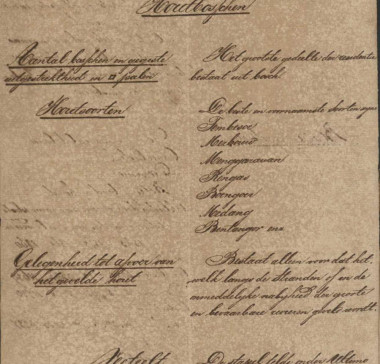 Houtbosschen
Aantal bosschen en
uitgestrektheid in □ palen
Het grootste gedeelte der residentie
bestaat uit bosch.
Houtsoorten
De beste en voornaamste soorten zijn
Tembesoe
Merbau
Mengarawan
Ringas
Boengoer
Medang
Gelegenheid tot afvoer van
het gevelde hout
Bestaat alleen voor dat het,
welk langs de stranden of in de
onmiddelijke nabijheid der groote
en bevaarbare rivieren geveld wordt.
De